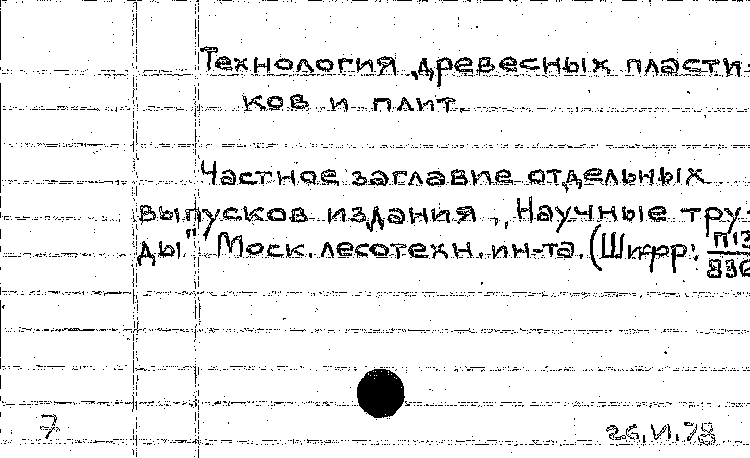 Технология древесных пласти-
ков и плит.
Частное заглавие отдельных
выпусков издания „Научные тру-
ды" Моск. лесотехн. ин-та. (Шифр:
7
26.VI.78